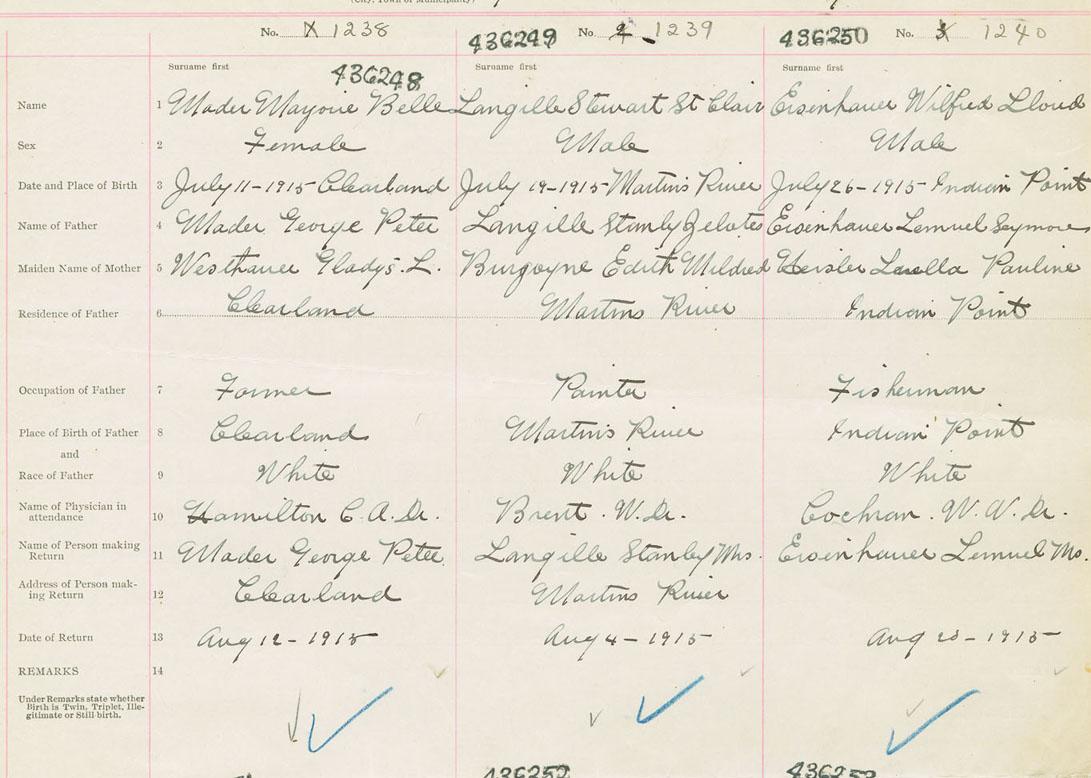 (City, Town or Municipality)
No. 1 1238 436249 No 2 1239 436250 No. 3 1240
Surname first Surname first Surname first
436248
Name 1 Mader Marjorie Belle Langille Stewart St Clair Eisenhauer Wilfred Lloyd
Sex 2 Female Male Male
Date and Place of Birth 3 July 11-1915 Clearland July 19-1915 Martins River July 26-1915 Indian Point
Name of Father 4 Mader George Peter Langille Stanly Zelotes Eisenhauer Lemuel Seymore
Maiden Name of Mother 5 Westhauer Gladys. L. Burgoyne Edith Mildred Heisler Luella Pauline
Residence of Father 6 Clearland Martins River Indian Point
Occupation of Father 7 Farmer Painter Fisherman
Place of Birth of Father 8 Clearland Martins River Indian Point
and
Race of Father 9 White White White
Name of Physician in
attendance 10 Hamilton C. A. Dr. Brent. W. Dr. Cochran. W. N. Dr.
Name of Person making
Return 11 Mader George Peter. Langille Stanley Mrs. Eisenhauer Lemuel Ms.
Address of Person mak-
ing Return 12 Clearland Martins River
Date of Return 13 Aug 12-1915 Aug 4-1915 Aug 20-1915
REMARKS 14
Under Remarks state whether
Birth is Twin, Triplet, Ille-
gitimate or Still birth.